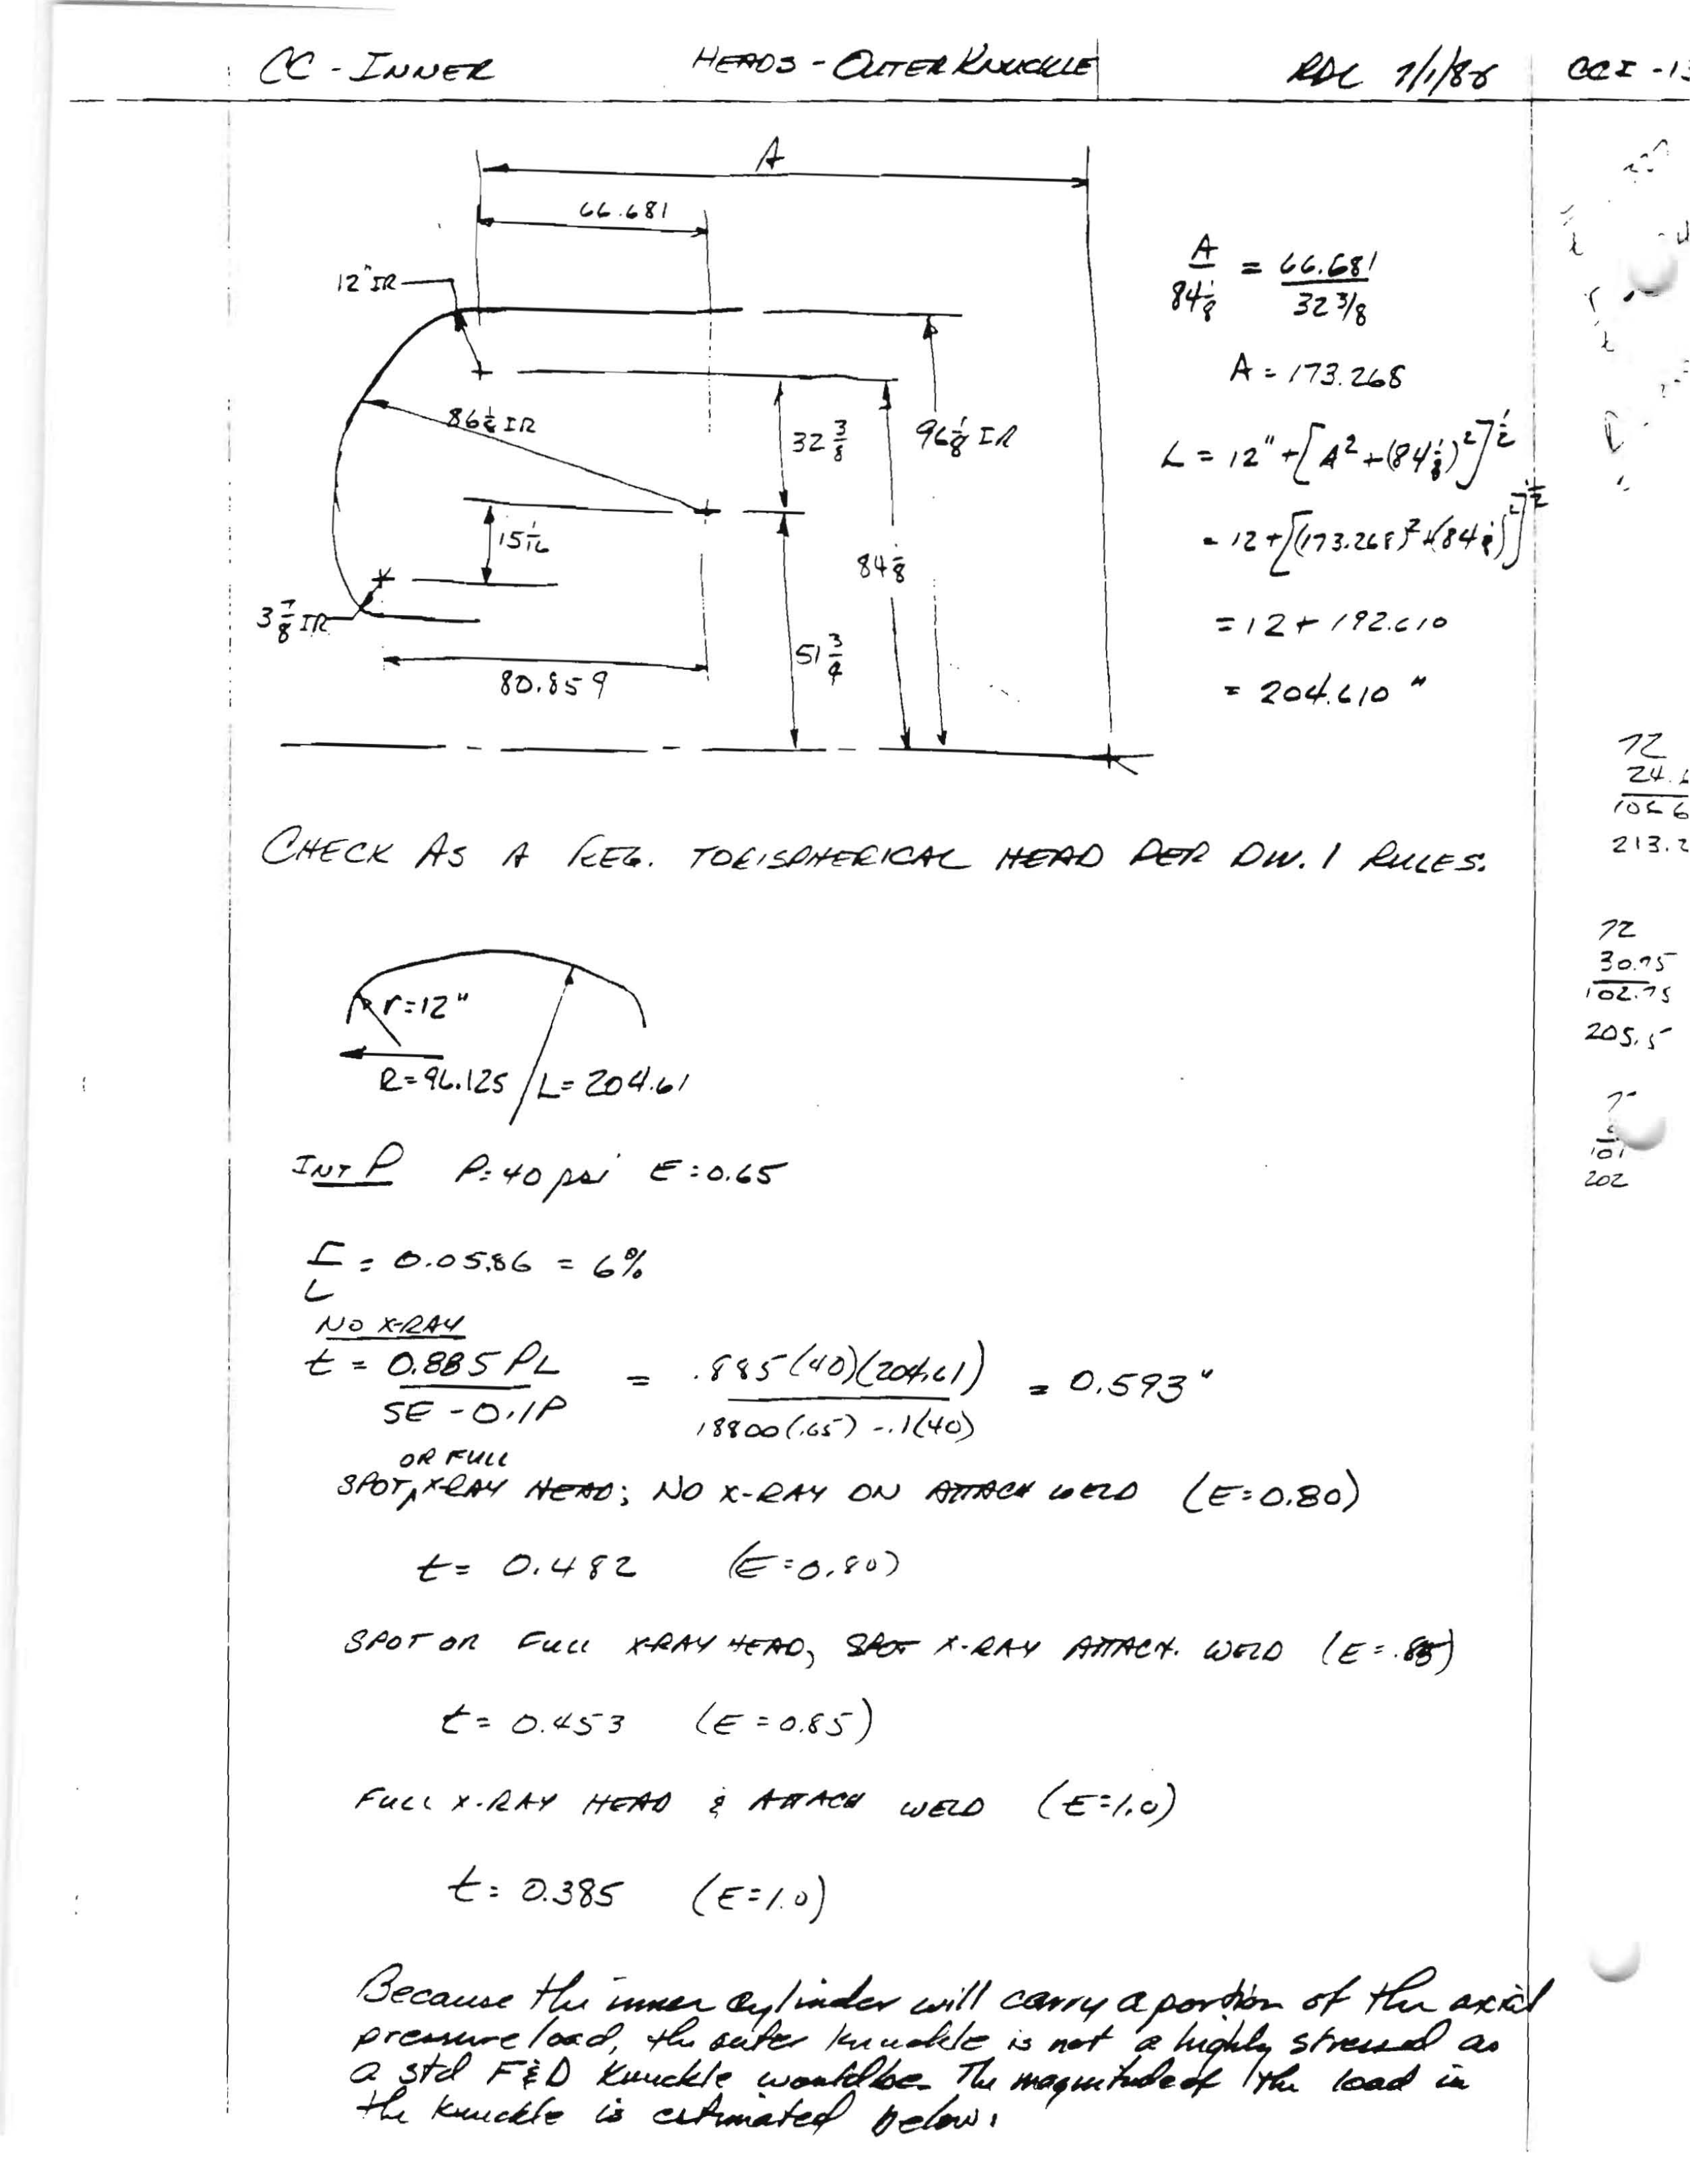 CC - INNER HEADS - OUTER KNUCKLE RDC 7/1/86 CCI - 13
A
66.681
12" IR
86 1/8 IR
32 3/8
96 1/8 IR
15 1/16
84 1/8
3 7/8 IR
51 3/4
80.859
A / 84 1/8 = 66.681 / 32 3/8
A = 173.268
L = 12" + [A² + (84 1/8)²]^1/2
= 12 + [(173.268)² + (84 1/8)²]^1/2
= 12 + 192.610
= 204.610 "
72
24.
106 6
213.2
CHECK AS A REG. TORISPHERICAL HEAD PER DIV. 1 RULES.
72
30.75
102.75
205.5
r = 12"
R = 96.125
L = 204.61
101
202
INT P P = 40 psi E = 0.65
r/L = 0.0586 = 6%
NO X-RAY
t = 0.885 PL / SE - 0.1P = .885 (40)(204.61) / 18800 (.65) - .1(40) = 0.593"
OR FULL
SPOT X-RAY HEAD; NO X-RAY ON ATTACH WELD (E = 0.80)
t = 0.482 (E = 0.80)
SPOT OR FULL X-RAY HEAD, SPOT X-RAY ATTACH. WELD (E = .85)
t = 0.453 (E = 0.85)
FULL X-RAY HEAD & ATTACH WELD (E = 1.0)
t = 0.385 (E = 1.0)
Because the inner cylinder will carry a portion of the axial
pressure load, the outer knuckle is not a highly stressed as
a std F&D knuckle would be. The magnitude of the load in
the knuckle is estimated below.